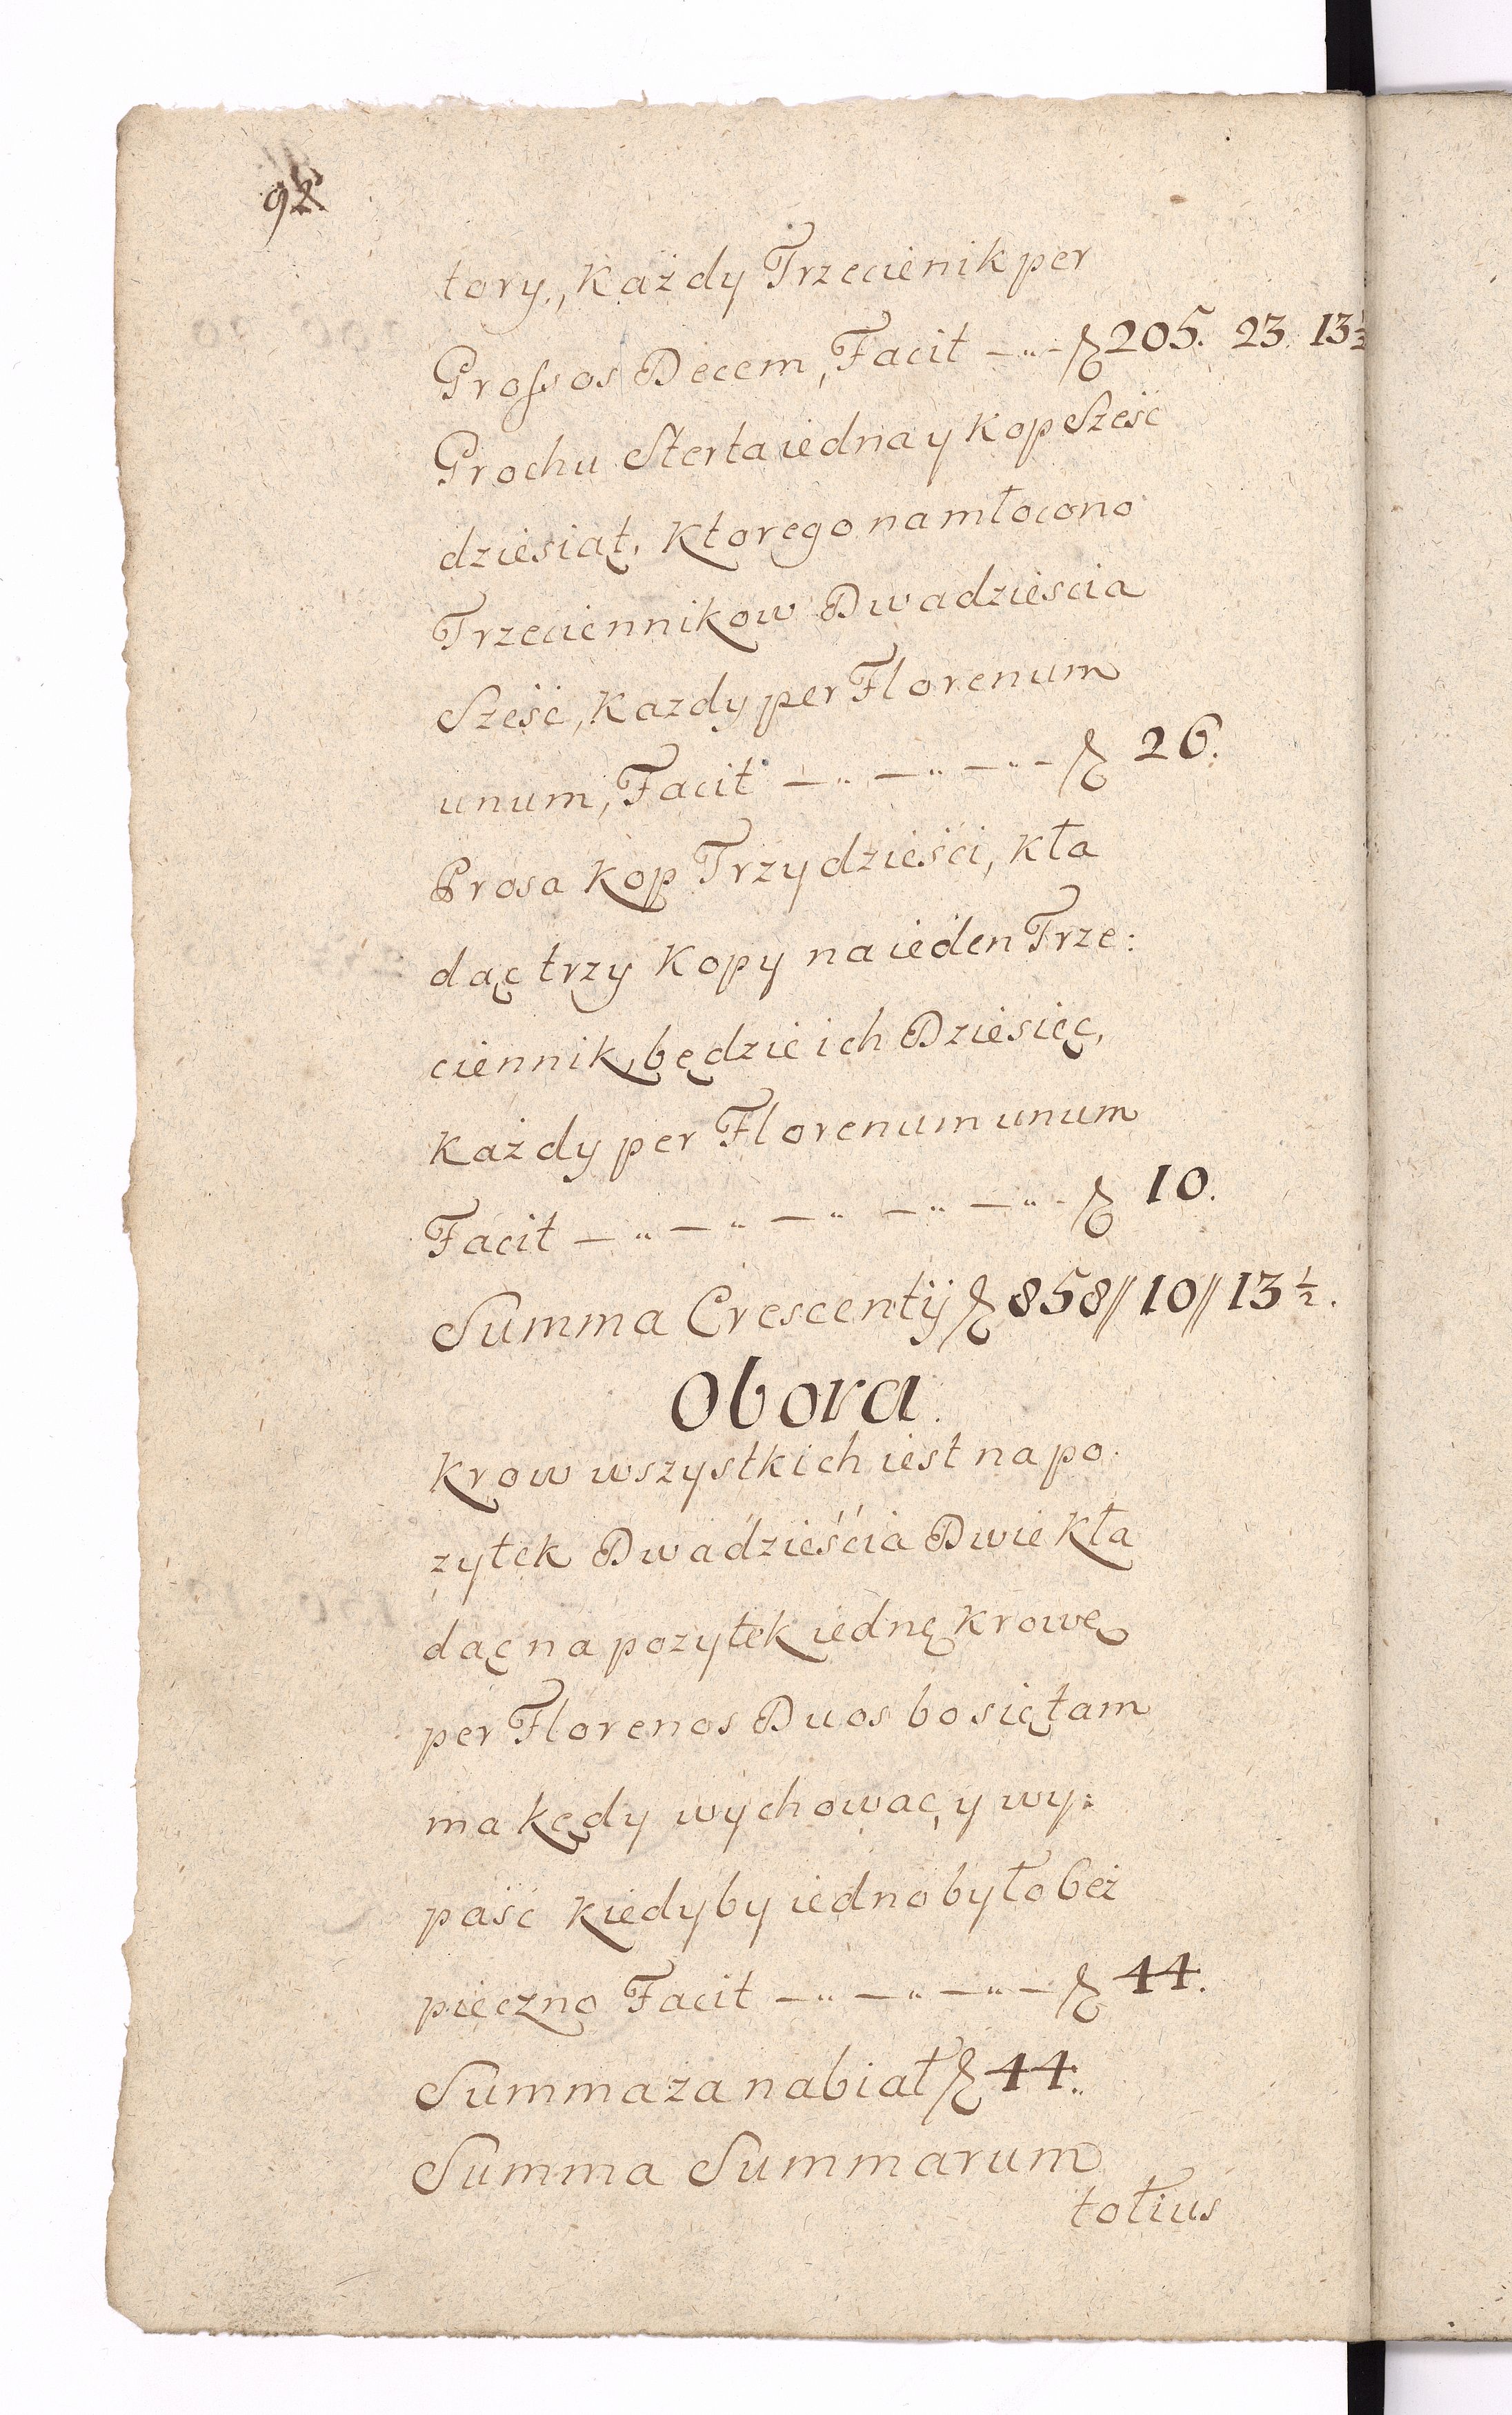 tory, Każdy Trzecienik per
Grossos Decem, Facit —"— ƒ 205. 23. 13½
Grochu Sterta iedna y Kop Sześć
dziesiąt, Ktorego namłocono
Trzeciennikow Dwadziescia
Sześć, Kazdy per Florenum
unum, Facit —"—"—"— ƒ 26.
Prosa Kop Trzydzieści, Kła
dąc trzy Kopy na ieden Trze:
ciennik, będzie ich Dziesięc,
Każdy per Florenum unum
Facit —"—"—"—"—"- ƒ 10.
Summa Crescentÿ ƒ 858//10//13½.
Obora.
Krow wszystkich iest na po.
zytek Dwadzieścia Dwie Kła
dąc na pozytek iednę krowę
per Florenos Duos bo się tam
ma kędy wychowac, y wy:
paść Kiedyby iedno było beż
pieczno Facit —"—"—"— ƒ 44.
Summa za nabiał ƒ 44.
Summa Summarum
totius